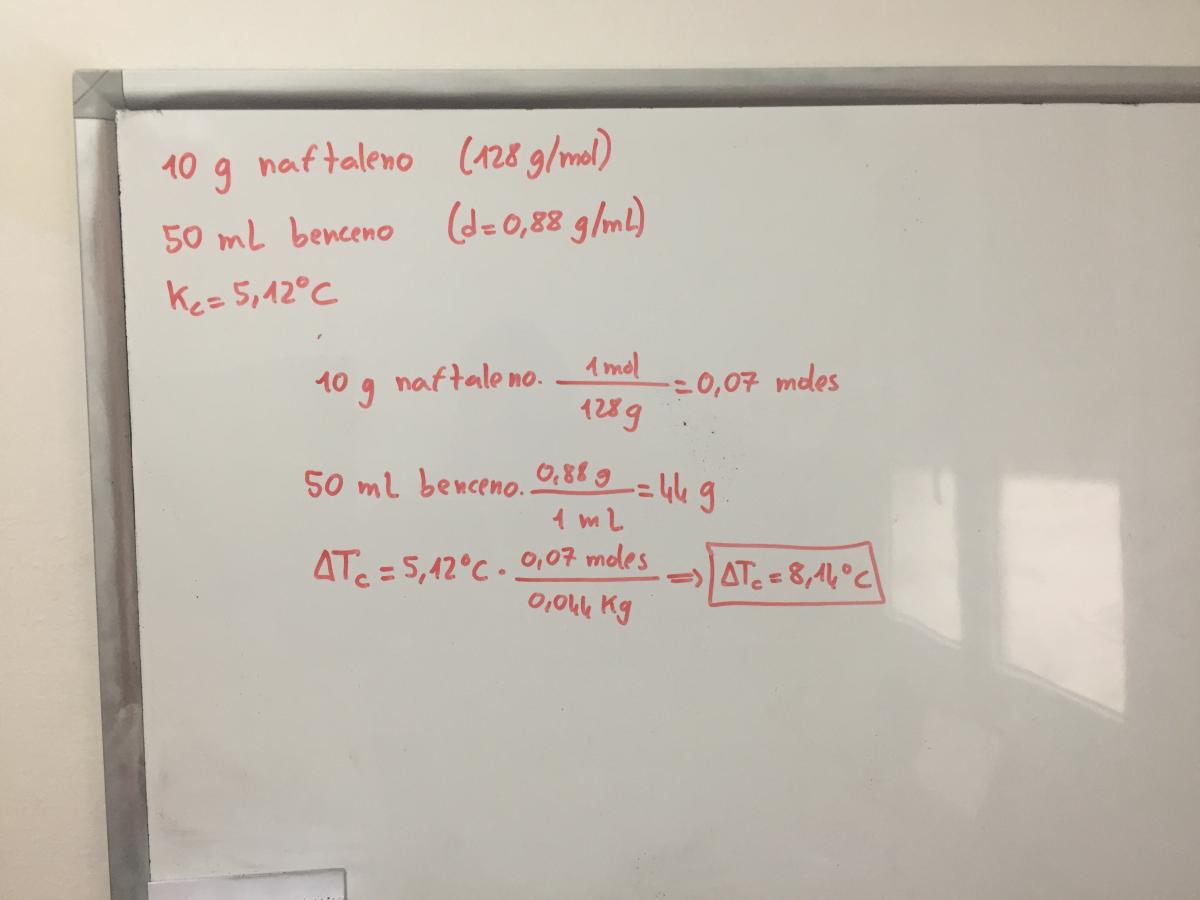 10 g naftaleno (128 g/mol)
50 mL benceno (d=0,88 g/mL)
Kc = 5,12°C
10 g naftaleno. 1 mol / 128 g = 0,07 moles
50 mL benceno. 0,88 g / 1 mL = 44 g
ΔTc = 5,12°C · 0,07 moles / 0,044 Kg ⇒ ΔTc = 8,14°C